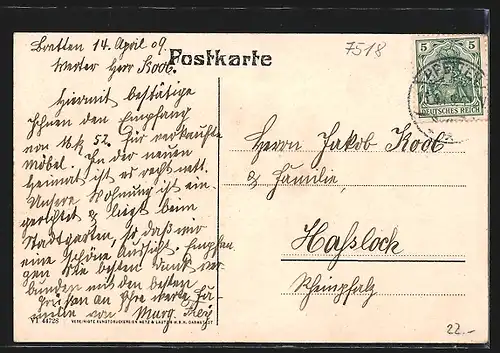 Bretten 14 April 09.
Postkarte
7518
Werter Herr Koob.
Hiermit bestätige
Ihnen den Empfang
von Mk 52. für verkaufte
Möbel. In der neuen
Heimat ist es recht nett.
Unsere Wohnung ist ein-
gerichtet & liegt beim
Stadtgarten, so daß wir
eine schöne Aussicht. Empfan
gen Sie besten Dank ver
bunden mit den besten
Grüßen an Ihre werte Fa-
milie von Marg. Frey
5 5
DEUTSCHES REICH
Herrn Jakob Koob
& Familie,
Hassloch
Rheinpfalz
VI 44728
VEREINIGTE KUNSTDRUCKEREIEN METZ & LAUTZ G.M.B.H. DARMSTADT
22.-